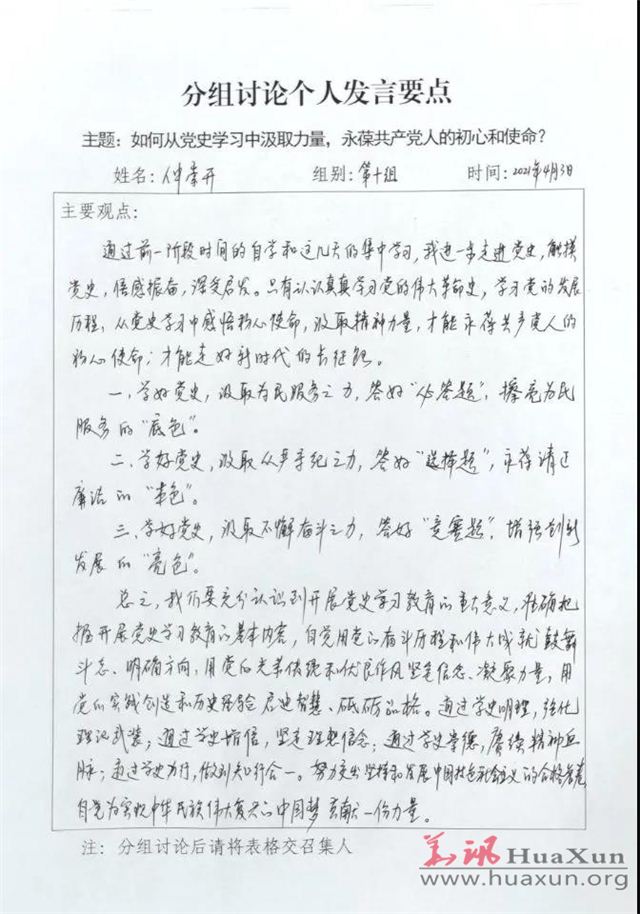 分组讨论个人发言要点
主题：如何从党史学习中汲取力量，永葆共产党人的初心和使命？
姓名：仲崇开 组别：第十组 时间：2021年4月3日
主要观点：
通过前一阶段时间的自学和这几天的集中学习，我进一步走进党史，触摸
党史，倍感振奋，深受启发。只有认认真真学习党的伟大革命史，学习党的发展
历程，从党史学习中感悟初心使命，汲取精神力量，才能永葆共产党人的
初心使命；才能走好新时代的长征路。
一、学好党史，汲取为民服务之力，答好“必答题”，擦亮为民
服务的“底色”。
二、学好党史，汲取从严守纪之力，答好“选择题”，永葆清正
廉洁的“本色”。
三、学好党史，汲取不懈奋斗之力，答好“竞赛题”，增强创新
发展的“亮色”。
总之，我们要充分认识到开展党史学习教育的重大意义，准确把
握开展党史学习教育的基本内容，自觉用党的奋斗历程和伟大成就鼓舞
斗志、明确方向，用党的光荣传统和优良作风坚定信念、凝聚力量，用
党的实践创造和历史经验启迪智慧、砥砺品格。通过学史明理，强化
理论武装；通过学史增信，坚定理想信念；通过学史崇德，赓续精神血
脉；通过学史力行，做到知行合一。努力交出坚持和发展中国特色社会主义的合格答卷，
自觉为实现中华民族伟大复兴的中国梦贡献一份力量。
注：分组讨论后请将表格交召集人
华讯HuaXun
www.huaxun.org